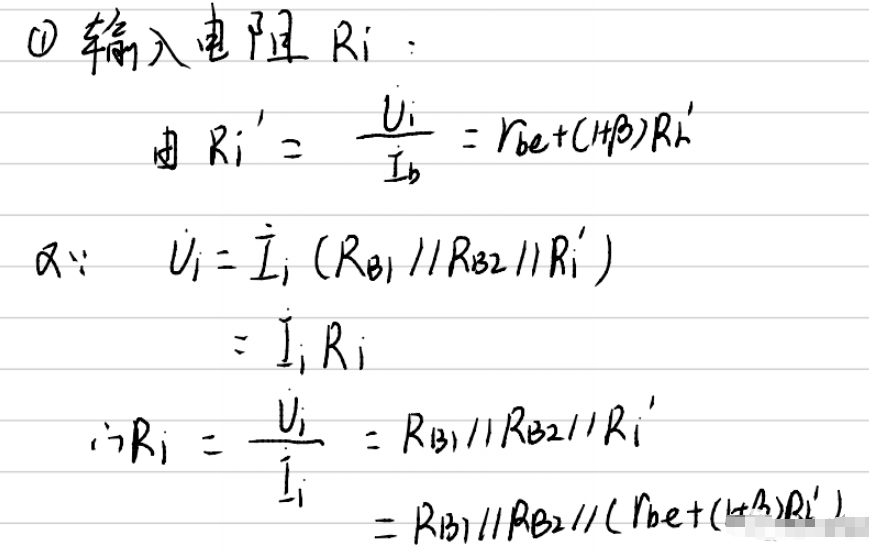 ① 输入电阻 Ri :
由 Ri' = U̇i / İb = rbe+(1+β)RL'
又∵ U̇i = İi (RB1//RB2//Ri')
= İi Ri
∴ Ri = U̇i / İi = RB1//RB2//Ri'
= RB1//RB2//(rbe+(1+β)RL')